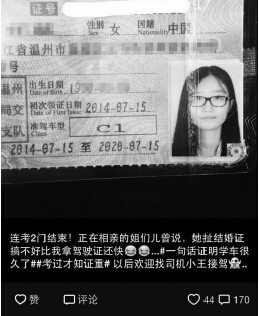 证号
性别 女 国籍 中国
Sex Nationality
江省温州市
号
温州 出生日期
Date of Birth
局交 初次领证日期 2014-07-15
Date of First Issue
支队 准驾车型 C1
Class
2014-07-15 至 2020-07-15
连考2门结束！正在相亲的姐们儿曾说，她扯结婚证
搞不好比我拿驾驶证还快😂😂...#一句话证明学车很
久了##考过才知证重# 以后欢迎找司机小王接驾
赞 评论 44 170